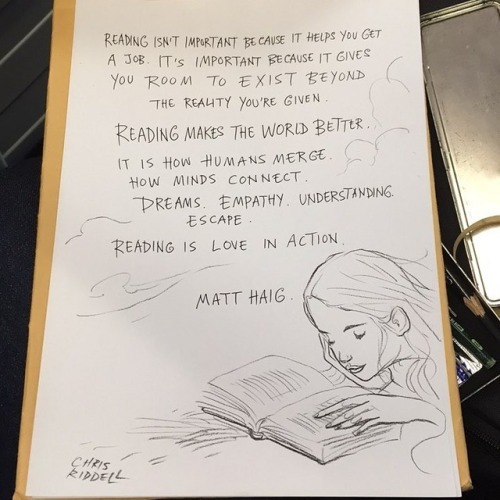 READING ISN'T IMPORTANT BECAUSE IT HELPS YOU GET
A JOB. IT'S IMPORTANT BECAUSE IT GIVES
YOU ROOM TO EXIST BEYOND
THE REALITY YOU'RE GIVEN.
READING MAKES THE WORLD BETTER.
IT IS HOW HUMANS MERGE.
HOW MINDS CONNECT.
DREAMS. EMPATHY. UNDERSTANDING.
ESCAPE.
READING IS LOVE IN ACTION.
MATT HAIG.
CHRIS
RIDDELL